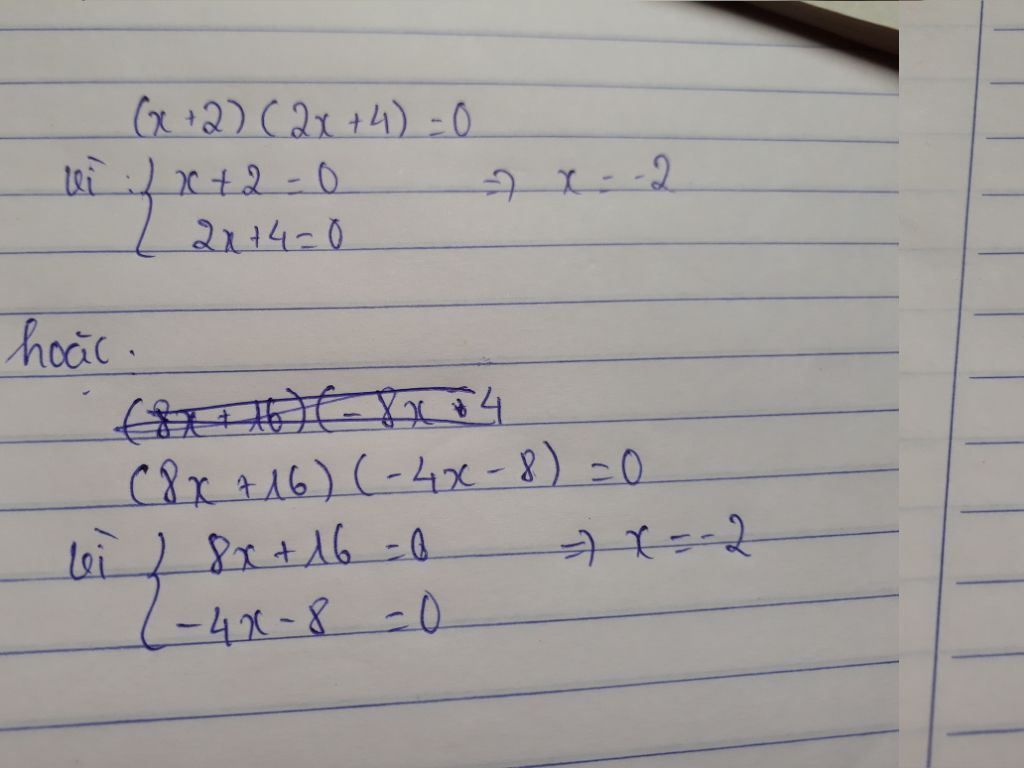 (x+2)(2x+4)=0
vì : { x+2=0 => x=-2
2x+4=0
hoặc.
(8x+16)(-8x+4
(8x+16)(-4x-8)=0
vì { 8x+16=0 => x=-2
-4x-8=0